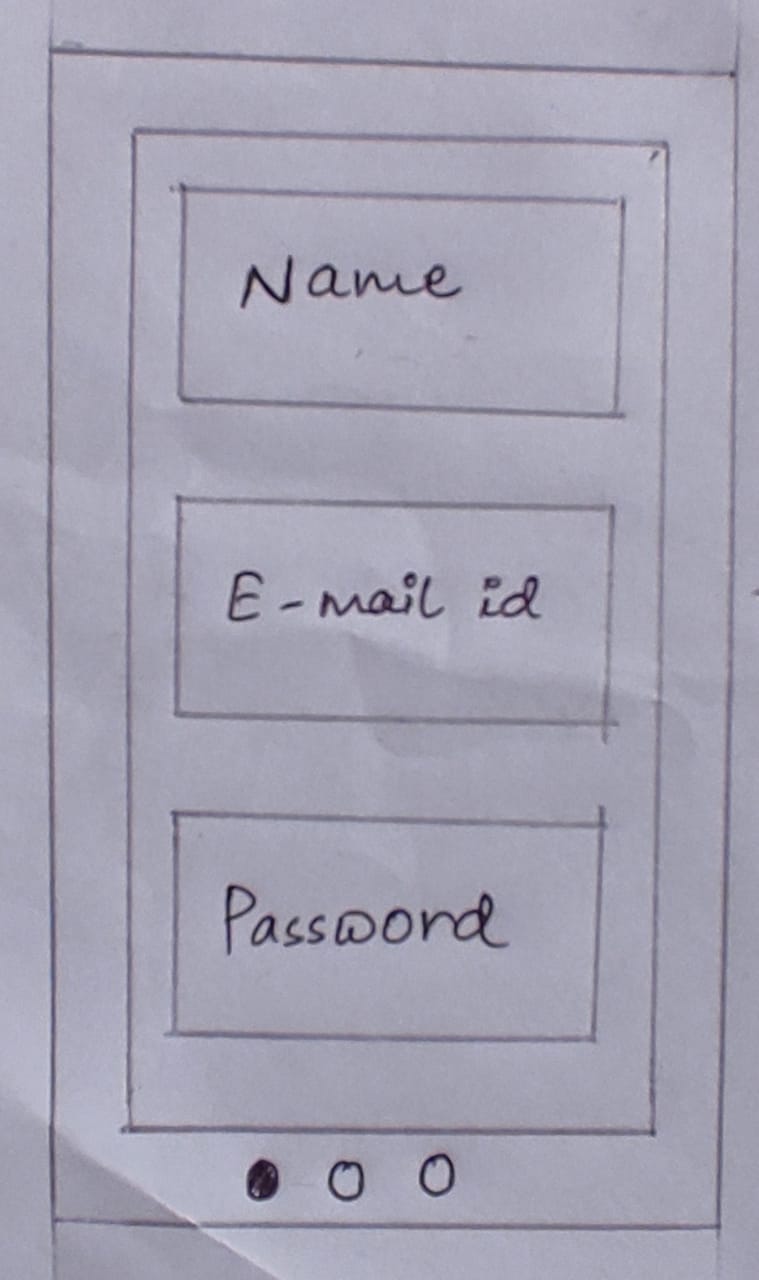 Name
E-mail id
Password